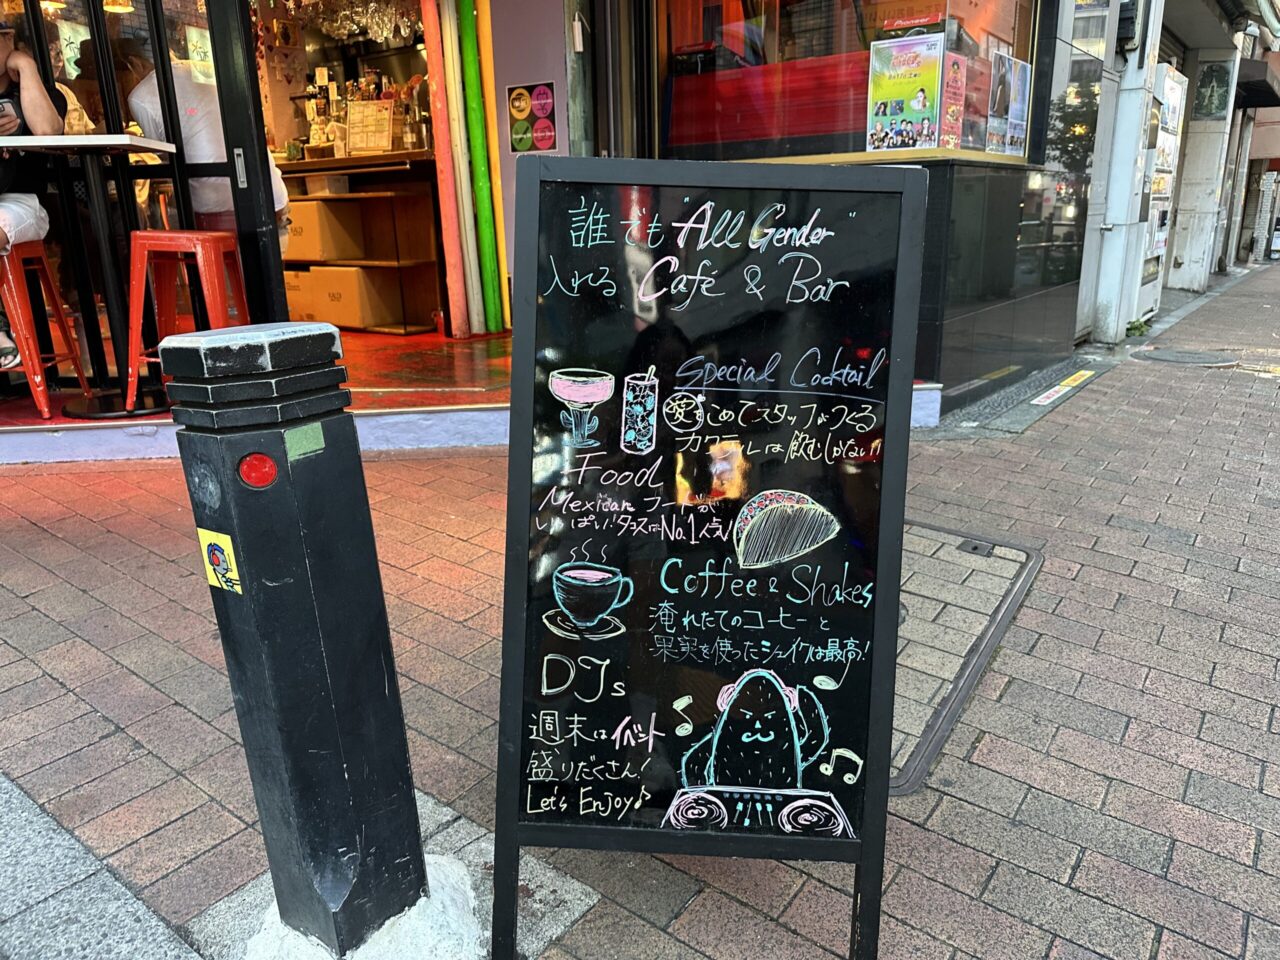 誰でも "All Gender"
入れる Café & Bar
Special Cocktail
愛をこめてスタッフがつくる
カクテルは飲むしかない!!
Food
Mexican フードが
いっぱい!タコスはNo.1人気!
Coffee & Shakes
淹れたてのコーヒーと
果実を使ったシェイクは最高!
DJs
週末はイベント
盛りだくさん!
Let's Enjoy♪
Pioneer